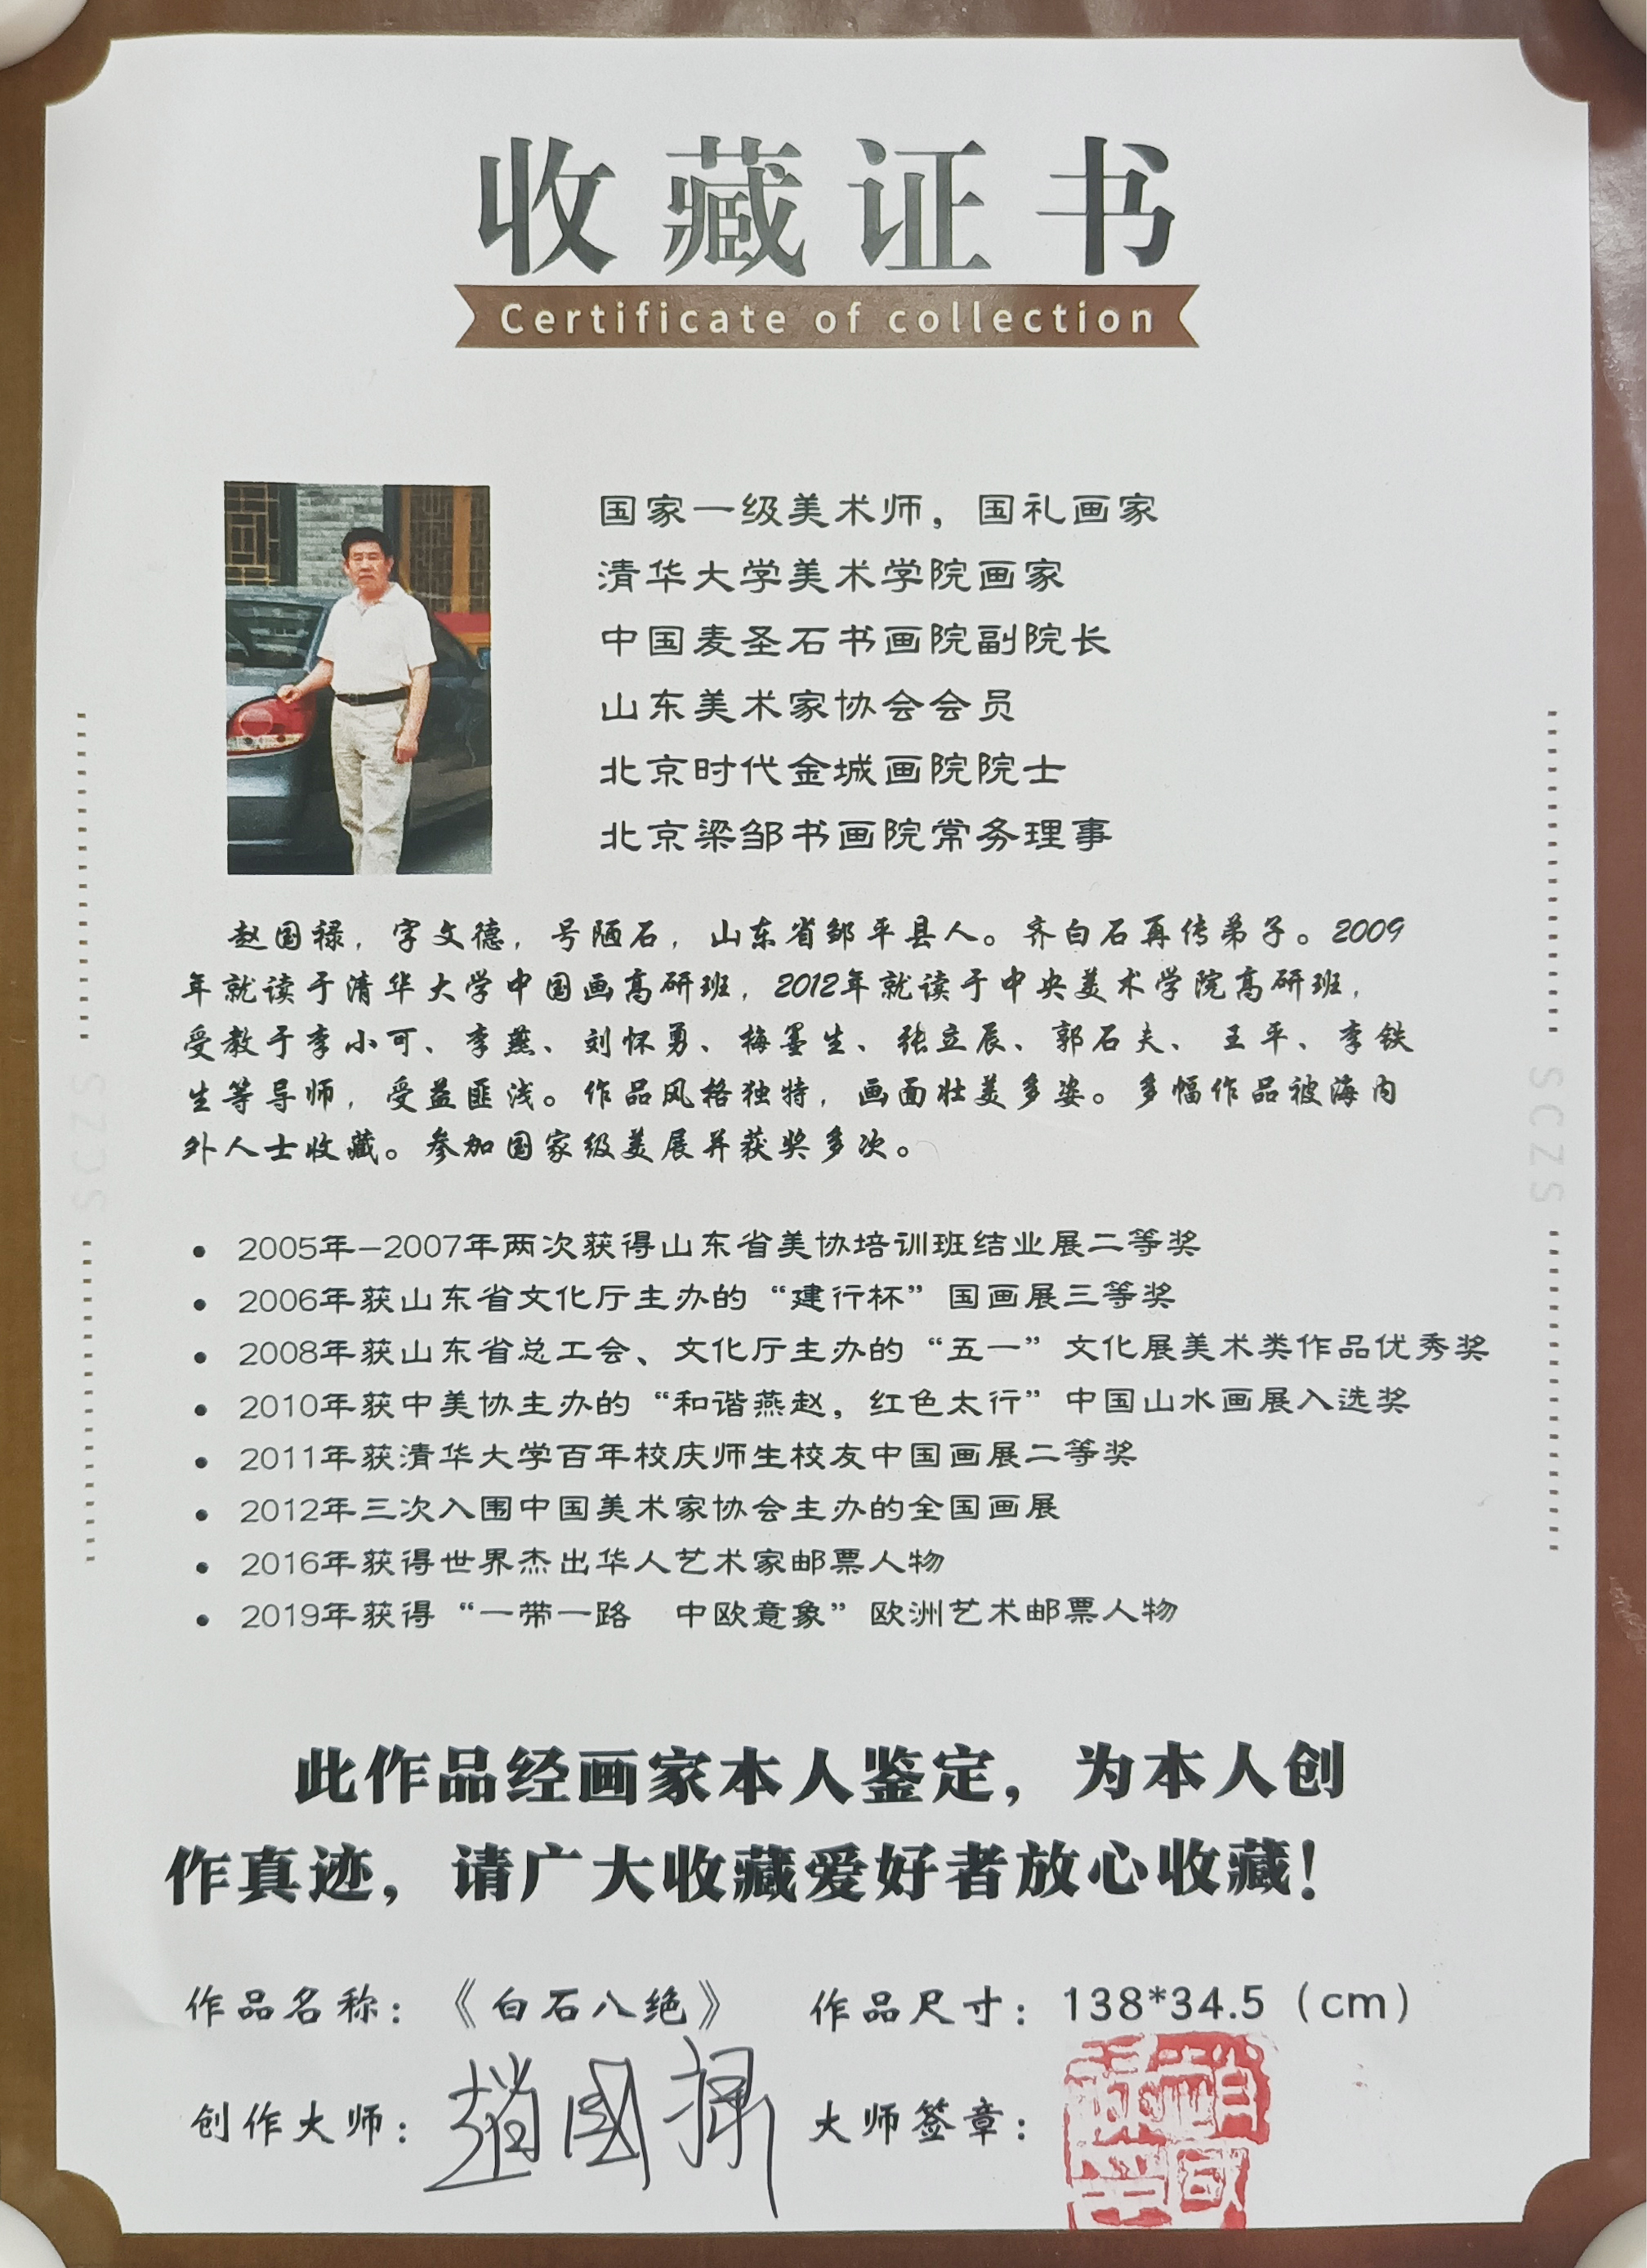 收藏证书
Certificate of collection
国家一级美术师，国礼画家
清华大学美术学院画家
中国麦圣石书画院副院长
山东美术家协会会员
北京时代金城画院院士
北京梁邹书画院常务理事
赵国禄，字文德，号陋石，山东省邹平县人。齐白石再传弟子。2009
年就读于清华大学中国画高研班，2012年就读于中央美术学院高研班，
受教于李小可、李燕、刘怀勇、梅墨生、张立辰、郭石夫、王平、李铁
生等导师，受益匪浅。作品风格独特，画面壮美多姿。多幅作品被海内
外人士收藏。参加国家级美展并获奖多次。
SCZS
SCZS
• 2005年-2007年两次获得山东省美协培训班结业展二等奖
• 2006年获山东省文化厅主办的“建行杯”国画展三等奖
• 2008年获山东省总工会、文化厅主办的“五一”文化展美术类作品优秀奖
• 2010年获中美协主办的“和谐燕赵，红色太行”中国山水画展入选奖
• 2011年获清华大学百年校庆师生校友中国画展二等奖
• 2012年三次入围中国美术家协会主办的全国画展
• 2016年获得世界杰出华人艺术家邮票人物
• 2019年获得“一带一路 中欧意象”欧洲艺术邮票人物
此作品经画家本人鉴定，为本人创
作真迹，请广大收藏爱好者放心收藏！
作品名称：《白石八绝》 作品尺寸：138*34.5（cm）
创作大师：趙國禄 大师签章：